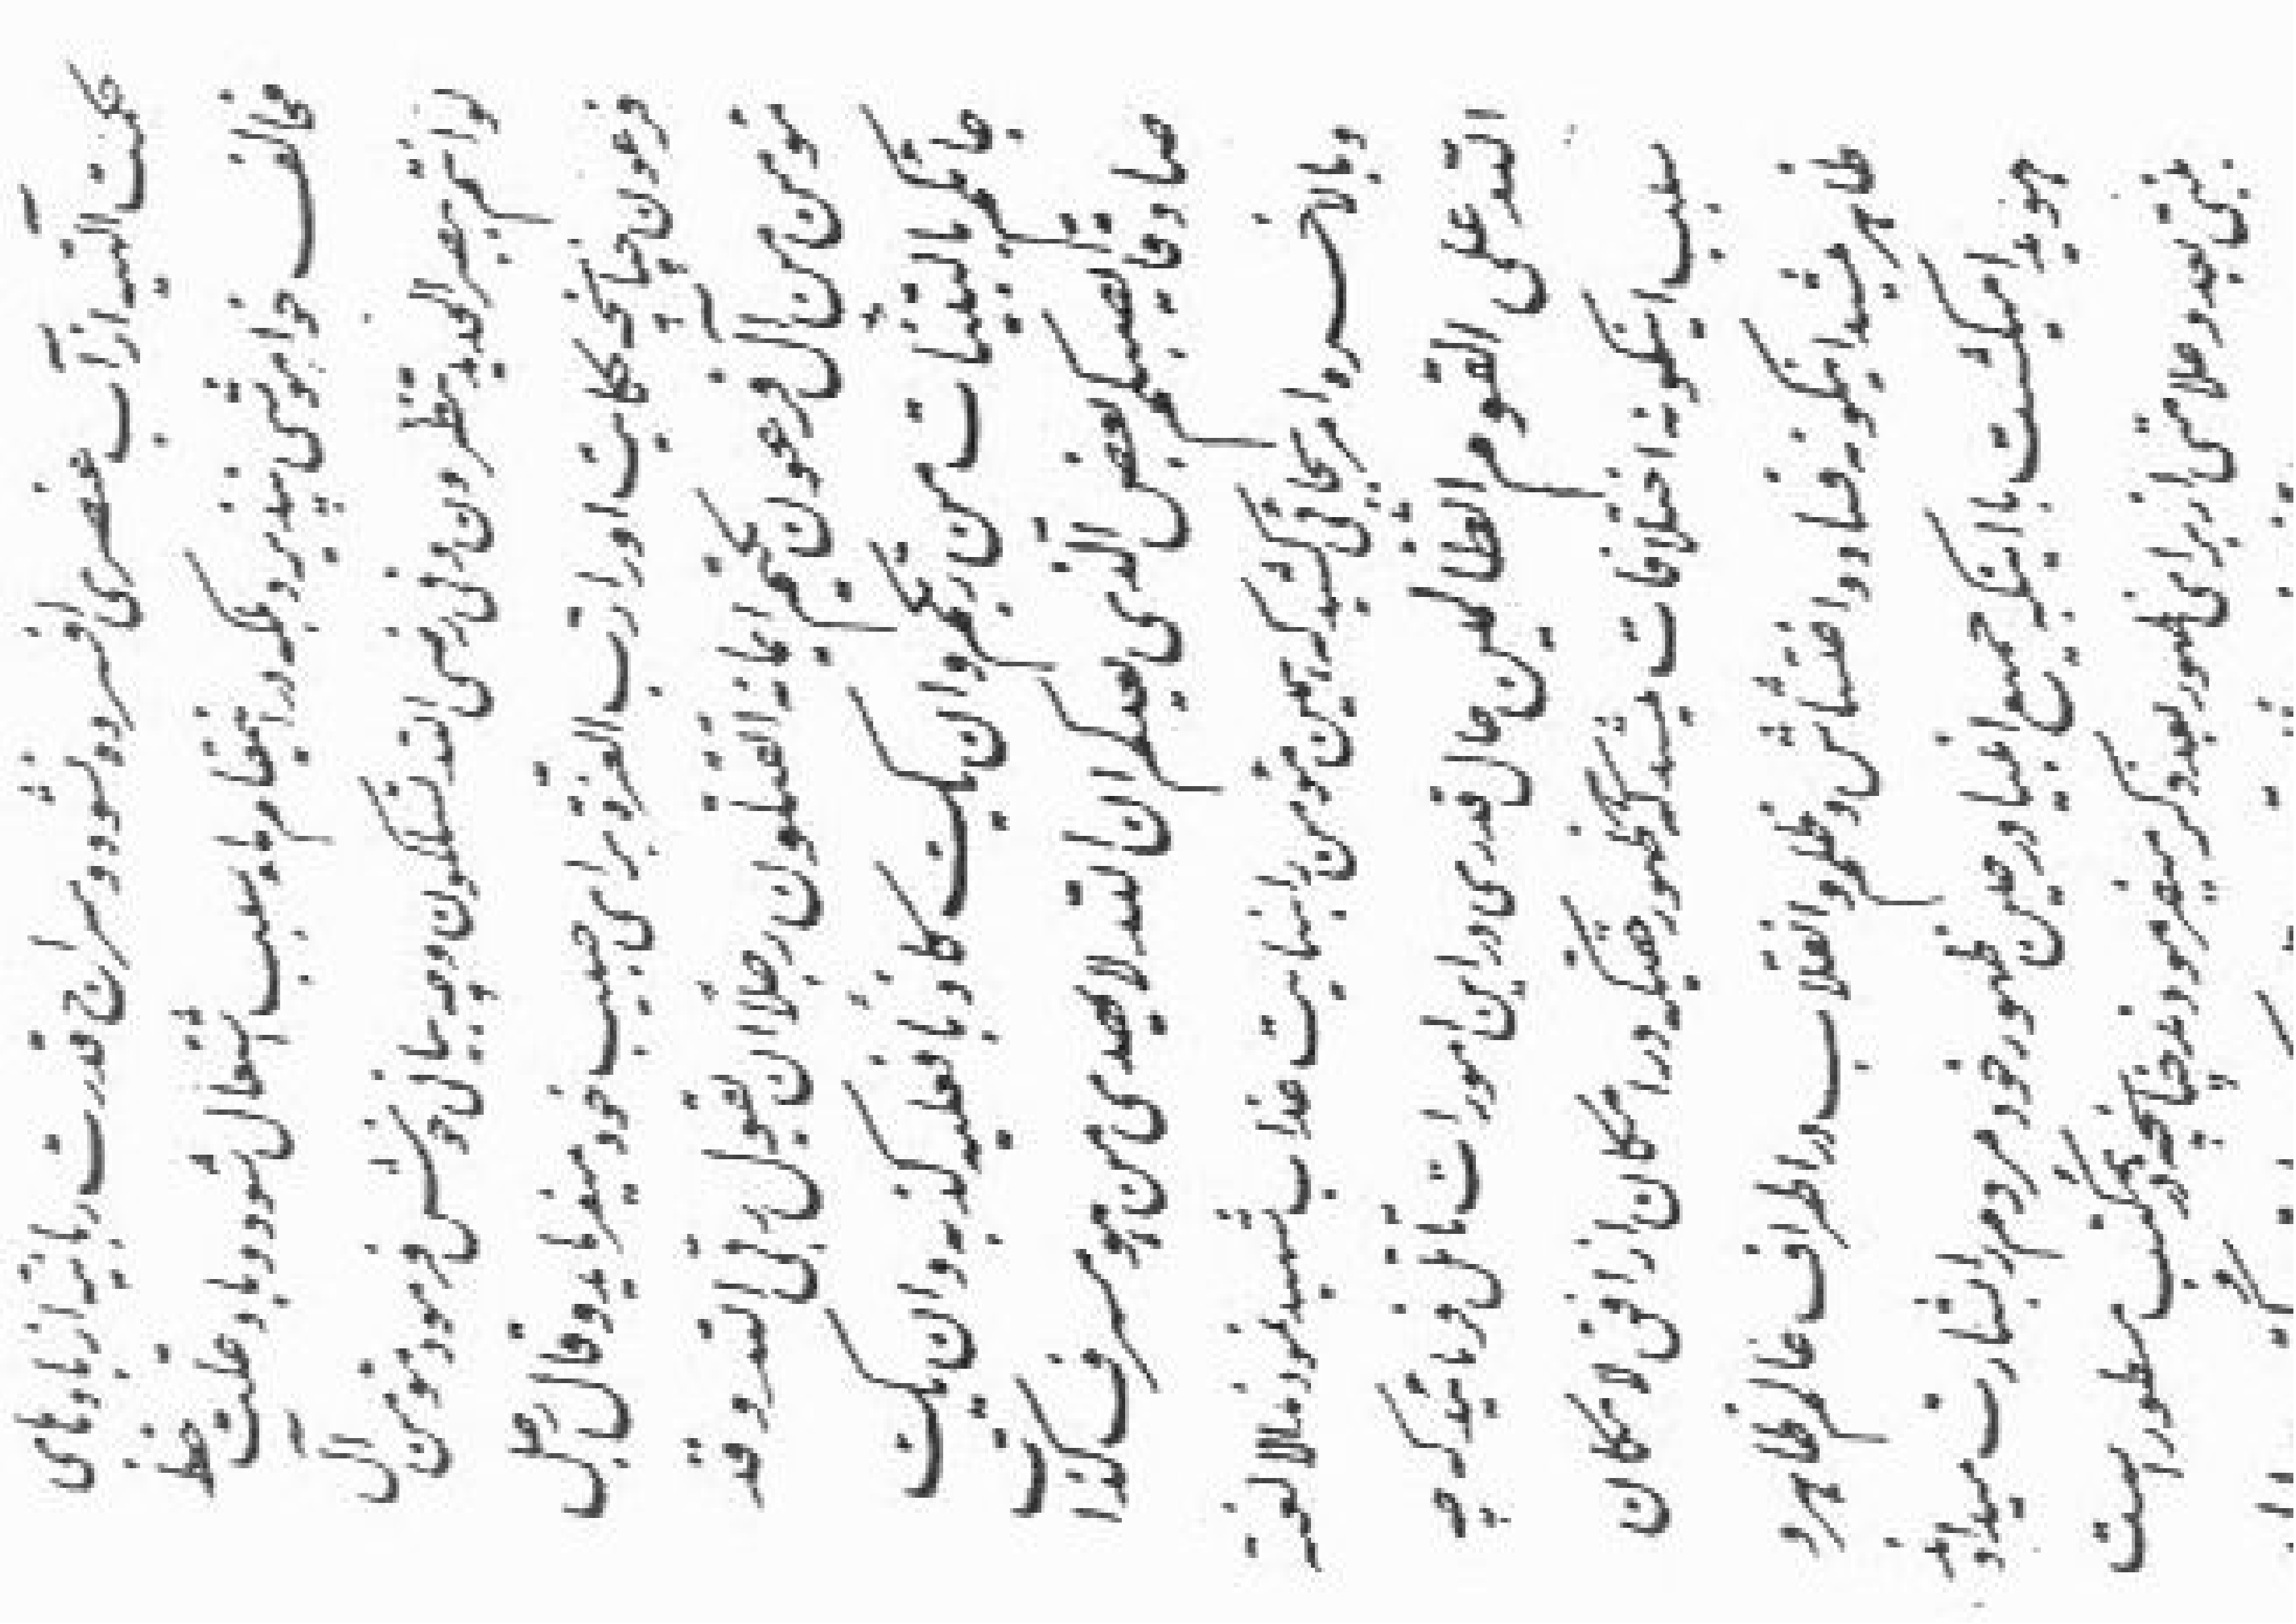 حکمت الهیه از آب عنصری افسرده نشود و سراج قدرت ربانیه از بادهای
مخالف خواموشی نپذیرد بلکه در اینمقام ماء سبب اشتعال شود و باد علت حفظ
لو انتم ببصر الحدید تنظرون و فی رضی الله تسلکون و چه بیان خوشی فرمود مؤمن آل
فرعون چنانچه حکایت او را رب العزة برای حبیب خود میفرماید و قال رجل
مؤمن من آل فرعون یکتم ایمانه اتقتلون رجلا ان یقول ربی الله و قد
جائکم بالبینات من ربکم و ان یک کاذبا فعلیه کذبه و ان یک
صادقا یصبکم بعض الذی یعدکم ان الله لا یهدی من هو مسرف کذاب
و بالاخره امر بجائی کشید که همین مؤمن را بنهایت عذاب شهید نمودند الا لعنة
الله علی القوم الظالمین حال قدری در این امورات تأمل فرمائید که چه
سبب اینگونه اختلافات میشد که هر ظهور حقیکه در امکان از افق لامکان
ظاهر میشد اینگونه فساد و اغتشاش و ظلم و انقلاب در اطراف عالم ظاهر و
هویدا میگشت با اینکه جمیع انبیاء در حین ظهور خود مردم را بشارت میدادند
بنبی بعد و علامتی از برای ظهور بعد ذکر میفرمودند چنانچه در کتب مسطور است